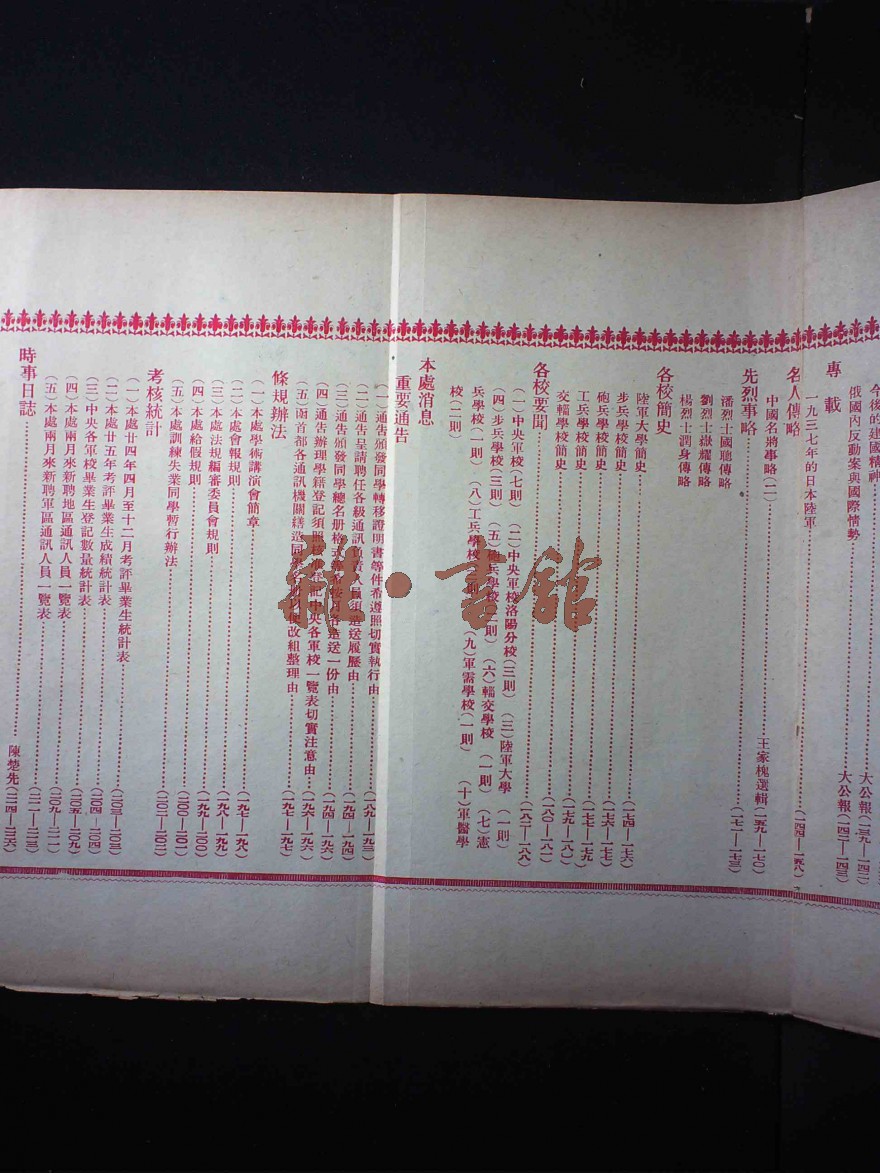 今後的建國精神……大公報(一三九—一四二)
俄國內反動案與國際情勢……大公報(一四二—一四三)
專載
一九三七年的日本陸軍……(一四四—一五八)
名人傳略
中國名將事略(二)……王家槐選輯(一五九—一七〇)
先烈事略……(一七一—一七三)
潘烈士國聰傳略
劉烈士嶽耀傳略
楊烈士潤身傳略
各校簡史
陸軍大學簡史……(一七四—一七六)
步兵學校簡史……(一七六—一七七)
砲兵學校簡史……(一七七—一七九)
工兵學校簡史……(一七九—一八〇)
交輜學校簡史……(一八〇—一八一)
各校要聞……(一八二—一八八)
(一)中央軍校(七則) (二)中央軍校洛陽分校(三則) (三)陸軍大學(一則)
(四)步兵學校(三則) (五)砲兵學校(二則) (六)輜交學校(一則) (七)憲
兵學校(一則) (八)工兵學校(二則) (九)軍需學校(一則) (十)軍醫學
校(二則)
本處消息
重要通告
(一)通告頒發同學轉移證明書等件希遵照切實執行由……(一八九—一九一)
(二)通告呈請聘任各級通訊負責人員須造送履歷由……(一九四—一九四)
(三)通告頒發同學總名册格式 按月各造送一份由……(一九四—一九五)
(四)通告辦理學籍登記須照 中央各軍校一覽表切實注意由……(一九六—一九六)
(五)函首部各通訊機關繕造同學 改組整理由……(一九七—一九七)
條規辦法
(一)本處學術講演會簡章……(一九七—一九八)
(二)本處會報規則……(一九八—一九九)
(三)本處法規編審委員會規則……(一九八—一九九)
(四)本處給假規則……(一九九—二〇〇)
(五)本處訓練失業同學暫行辦法……(二〇一—二〇二)
考核統計
(一)本處廿四年四月至十二月考評畢業生統計表……(二〇三—二〇三)
(二)本處廿五年考評畢業生成績統計表……(二〇四—二〇四)
(三)中央各軍校畢業生登記數量統計表……(二〇五—二〇九)
(四)本處兩月來新聘地區通訊人員一覽表……(二〇九—二一一)
(五)本處兩月來新聘軍區通訊人員一覽表……(二一一—二一三)
時事日誌……陳楚先(二一四—二二六)
雅·書館